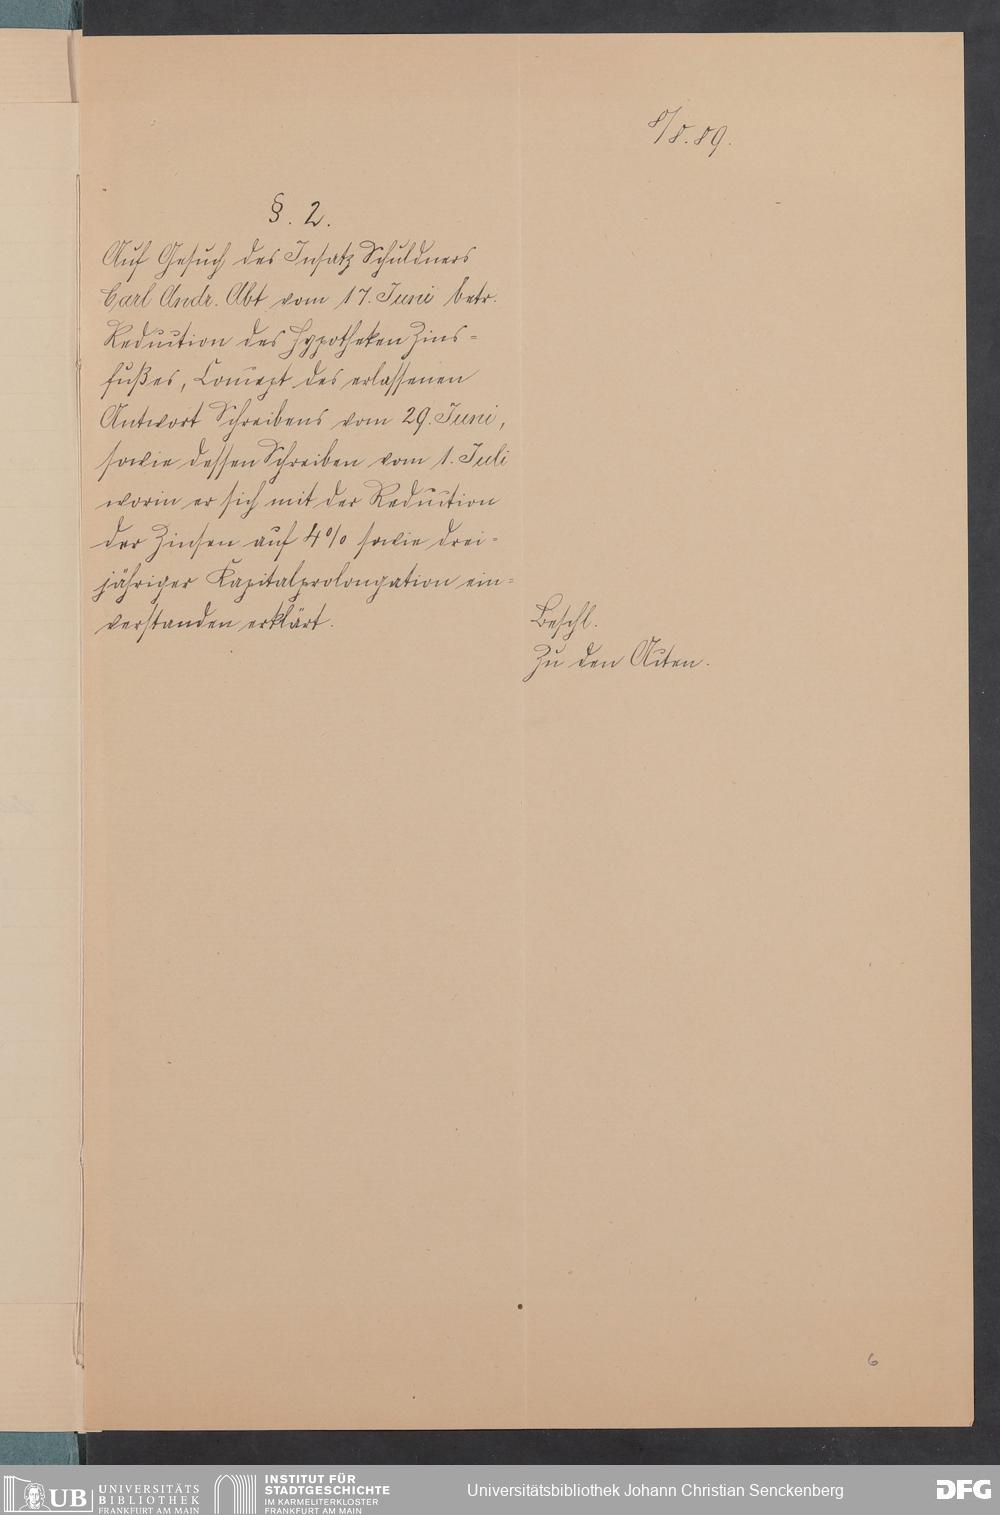 8/8. 89.
§. 2.
Auf Gesuch des Insatz Schuldners
Carl Andr. Abt vom 17. Juni betr.
Reduction des Hypotheken Zins-
fußes, Concept des erlassenen
Antwort Schreibens vom 29. Juni,
sowie dessen Schreiben vom 1. Juli
worin er sich mit der Reduction
der Zinsen auf 4% sowie drei-
jähriger Kapitalprolongation ein-
verstanden erklärt.
Beschl.
Zu den Acten.
6
UB UNIVERSITÄTS
BIBLIOTHEK
FRANKFURT AM MAIN
INSTITUT FÜR
STADTGESCHICHTE
IM KARMELITERKLOSTER
FRANKFURT AM MAIN
Universitätsbibliothek Johann Christian Senckenberg
DFG